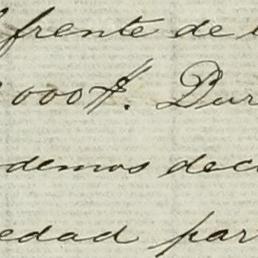 frente de
000 $. Dur
demos dec
edad par